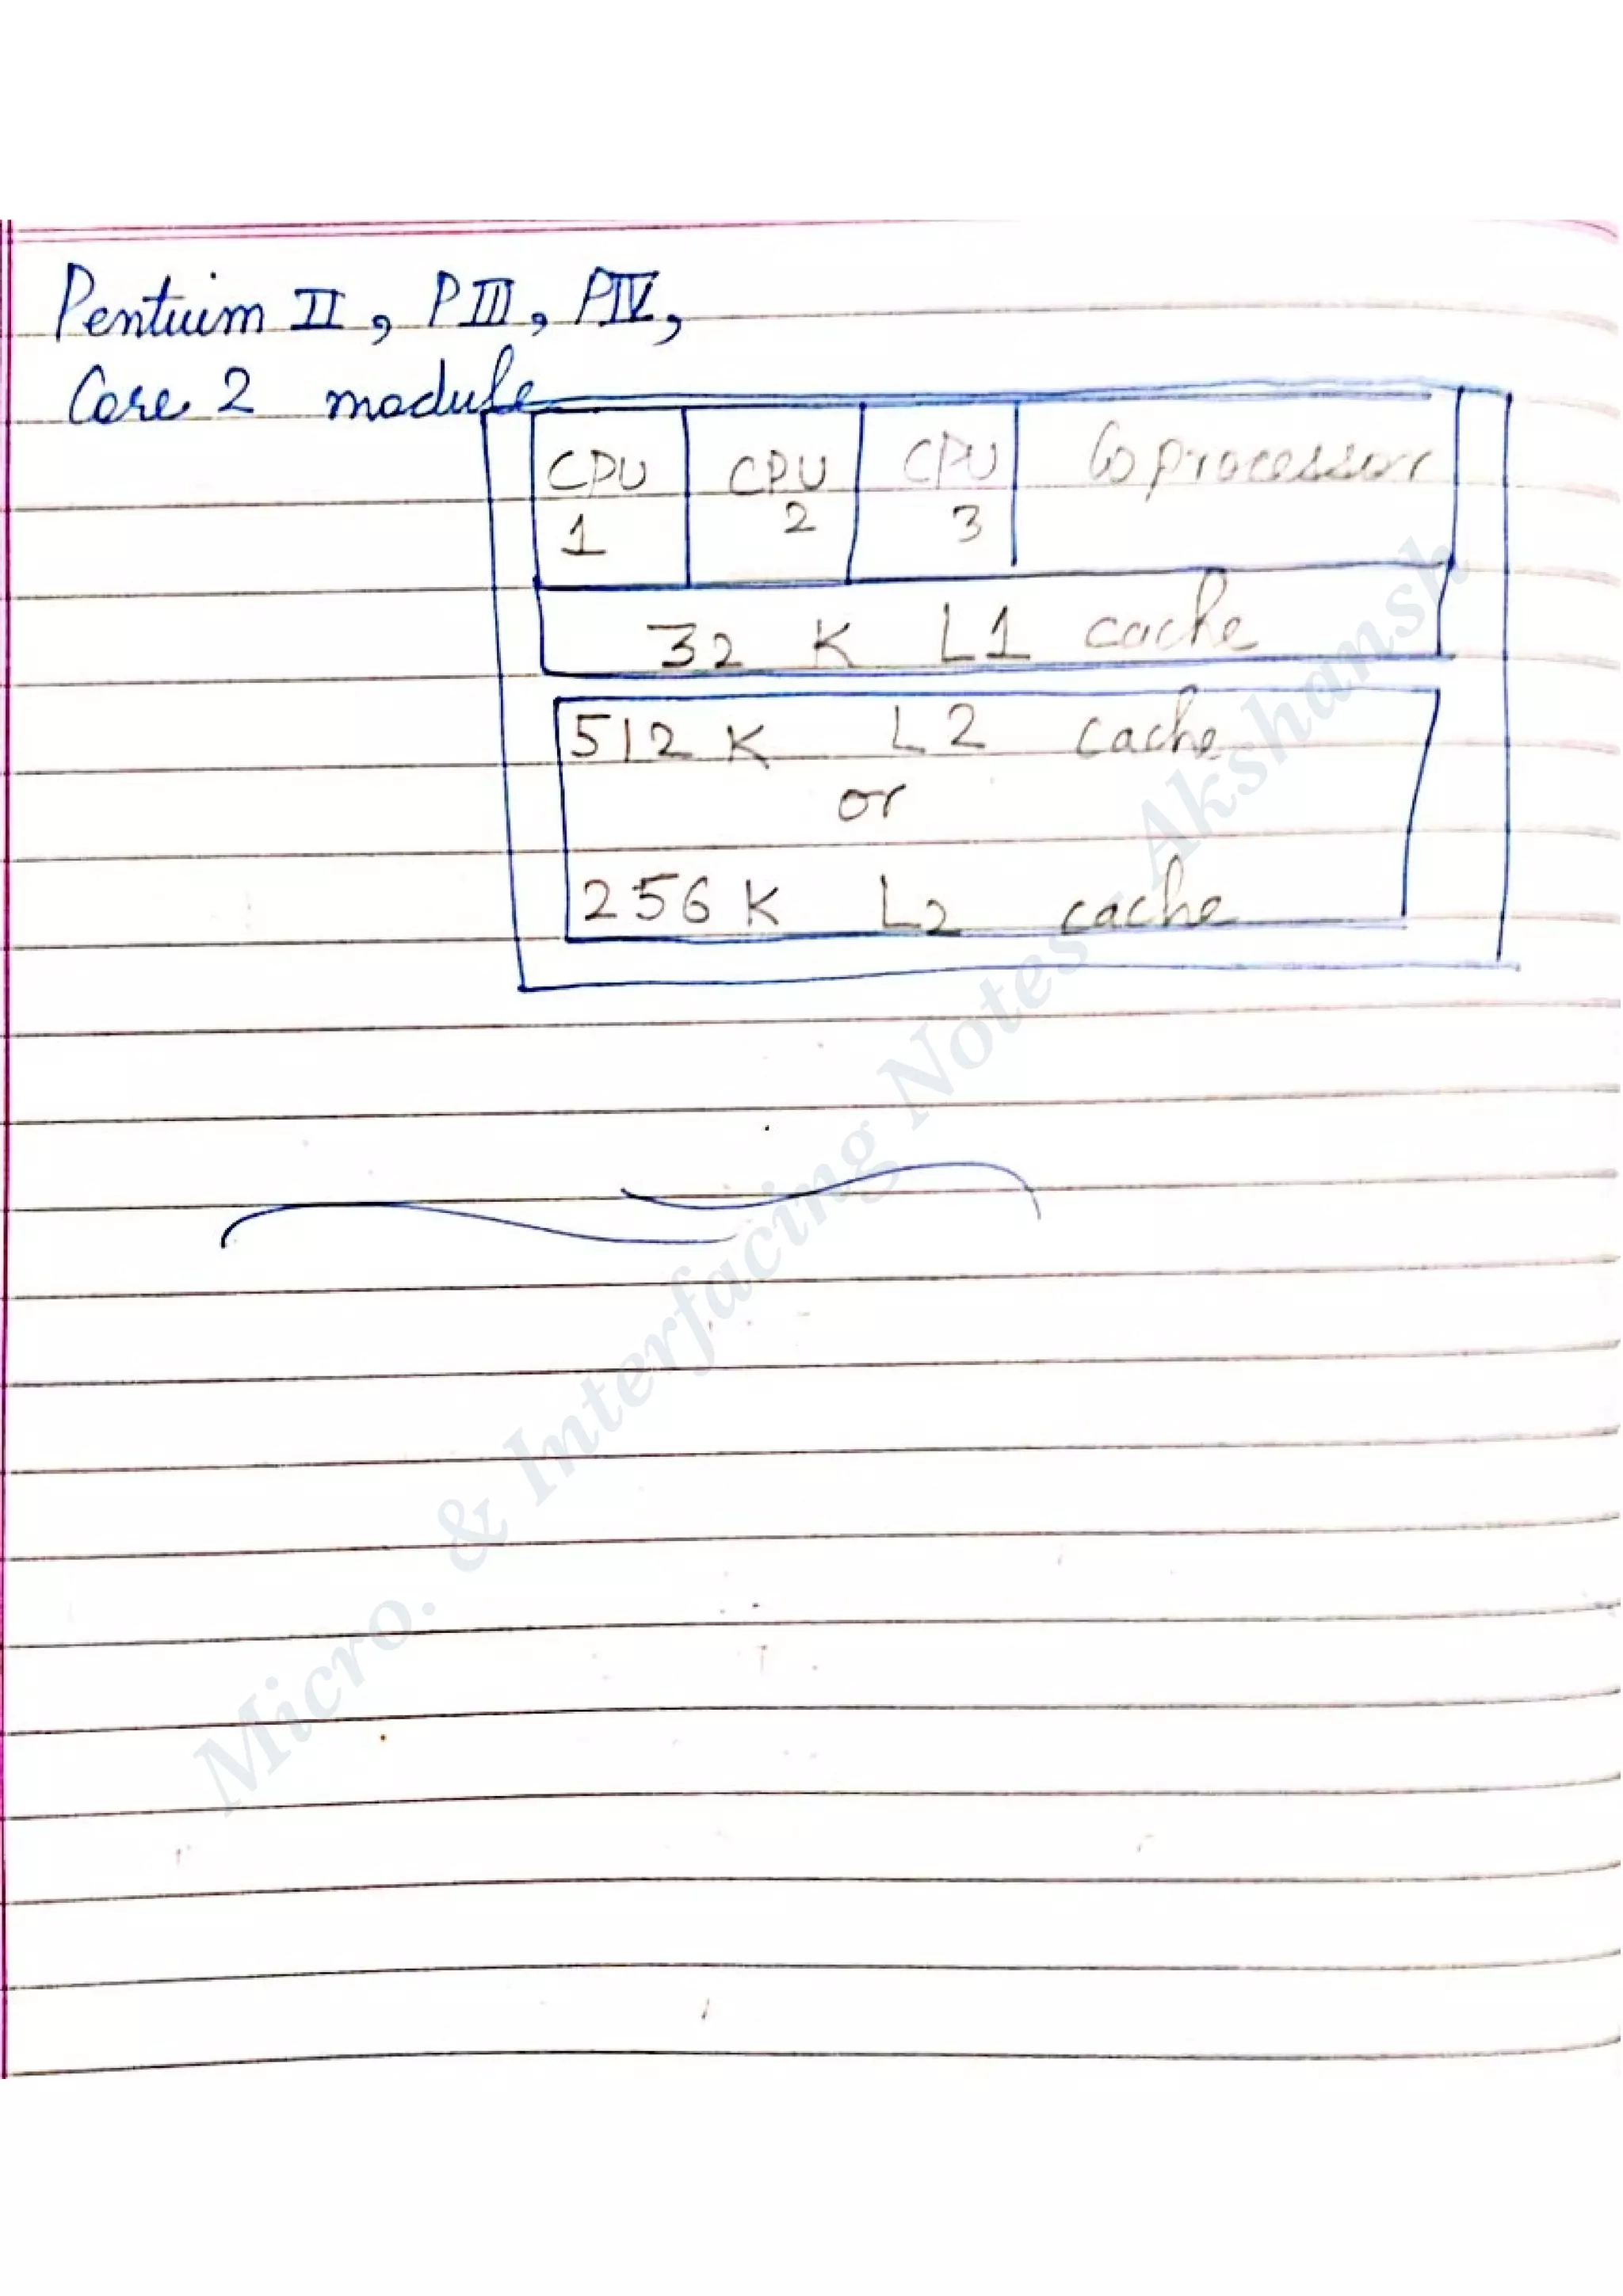 Pentuim II, PIII, PIV,
Core 2 module
CPU 1
CPU 2
CPU 3
Coprocessor
32 K L1 cache
512 K L2 cache
or
256 K L2 cache
Micro. & Interfacing Notes - Akshansh